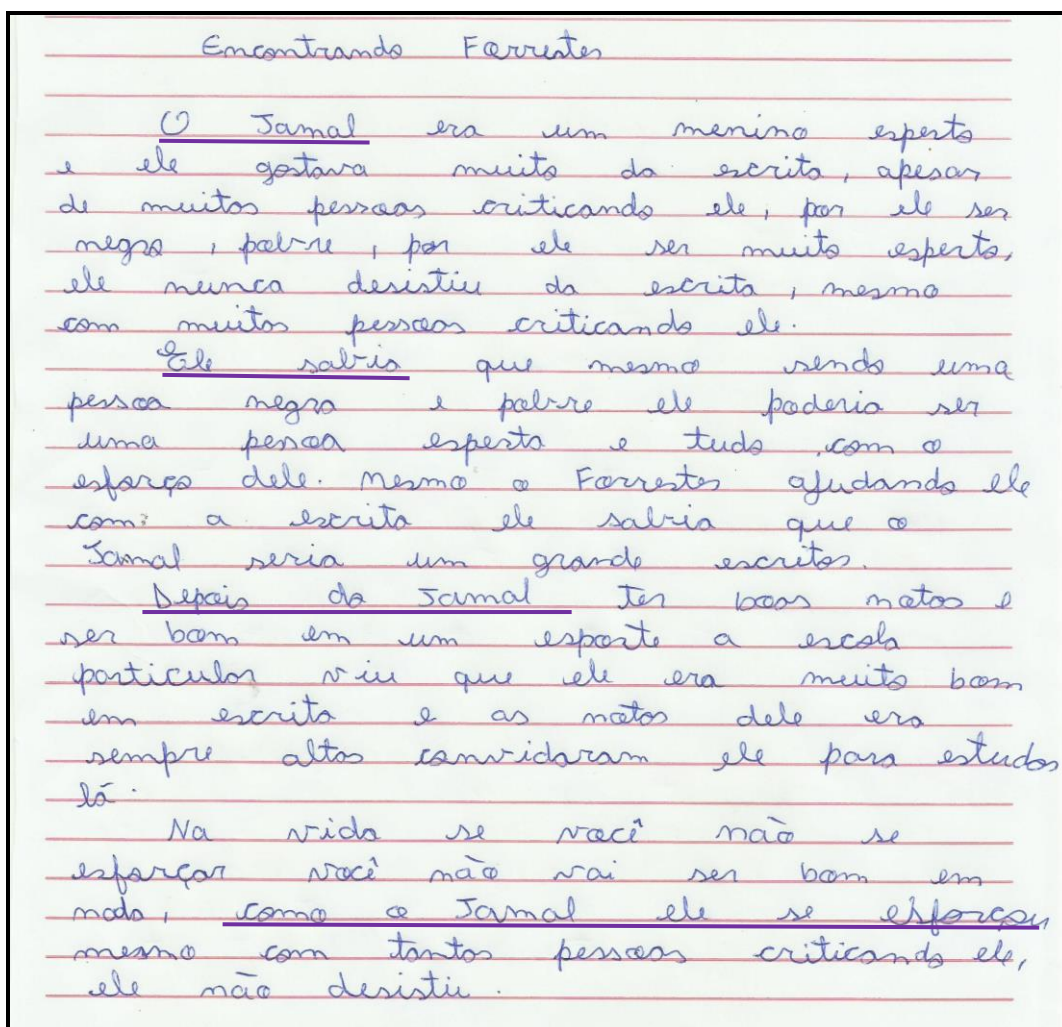 Encontrando Forrester
O Jamal era um menino esperto
e ele gostava muito da escrita, apesar
de muitas pessoas criticando ele, por ele ser
negro, pobre, por ele ser muito esperto,
ele nunca desistiu da escrita, mesmo
com muitas pessoas criticando ele.
Ele sabia que mesmo sendo uma
pessoa negra e pobre ele poderia ser
uma pessoa esperta e tudo com o
esforço dele. Mesmo o Forrester ajudando ele
com a escrita ele sabia que o
Jamal seria um grande escritor.
Depois do Jamal ter boas notas e
ser bom em um esporte a escola
particular viu que ele era muito bom
em escrita e as notas dele era
sempre altas convidaram ele para estudar
lá.
Na vida se você não se
esforçar você não vai ser bom em
nada, como o Jamal ele se esforçou,
mesmo com tantas pessoas criticando ele,
ele não desistiu.